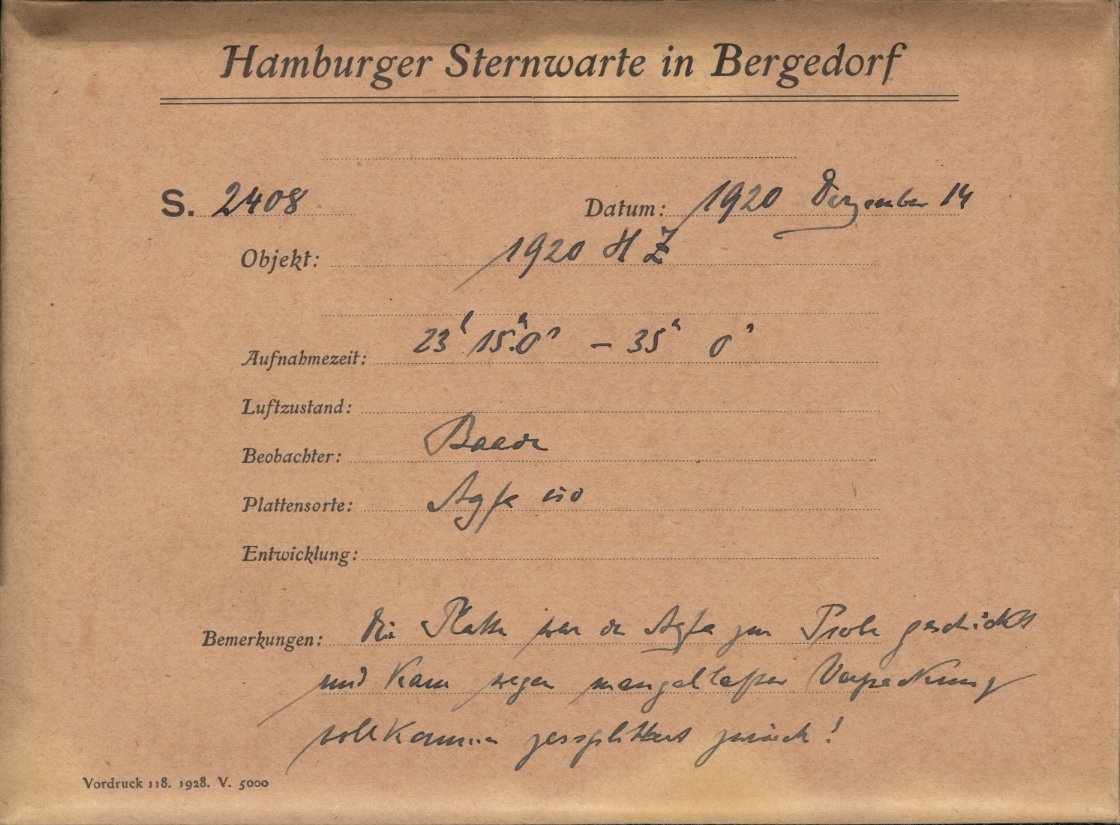 Hamburger Sternwarte in Bergedorf
S. 2408 Datum: 1920 Dezember 14
Objekt: 1920 HZ
Aufnahmezeit: 23ʰ 15ᵐ 0ˢ – 35ᵐ 0ˢ
Luftzustand:
Beobachter: Baade
Plattensorte: Agfa
Entwicklung:
Bemerkungen: Die Platte war der Agfa zur Probe geschickt
und kam wegen mangelhafter Verpackung
vollkommen zersplittert zurück!
Vordruck 118. 1928. V. 5000